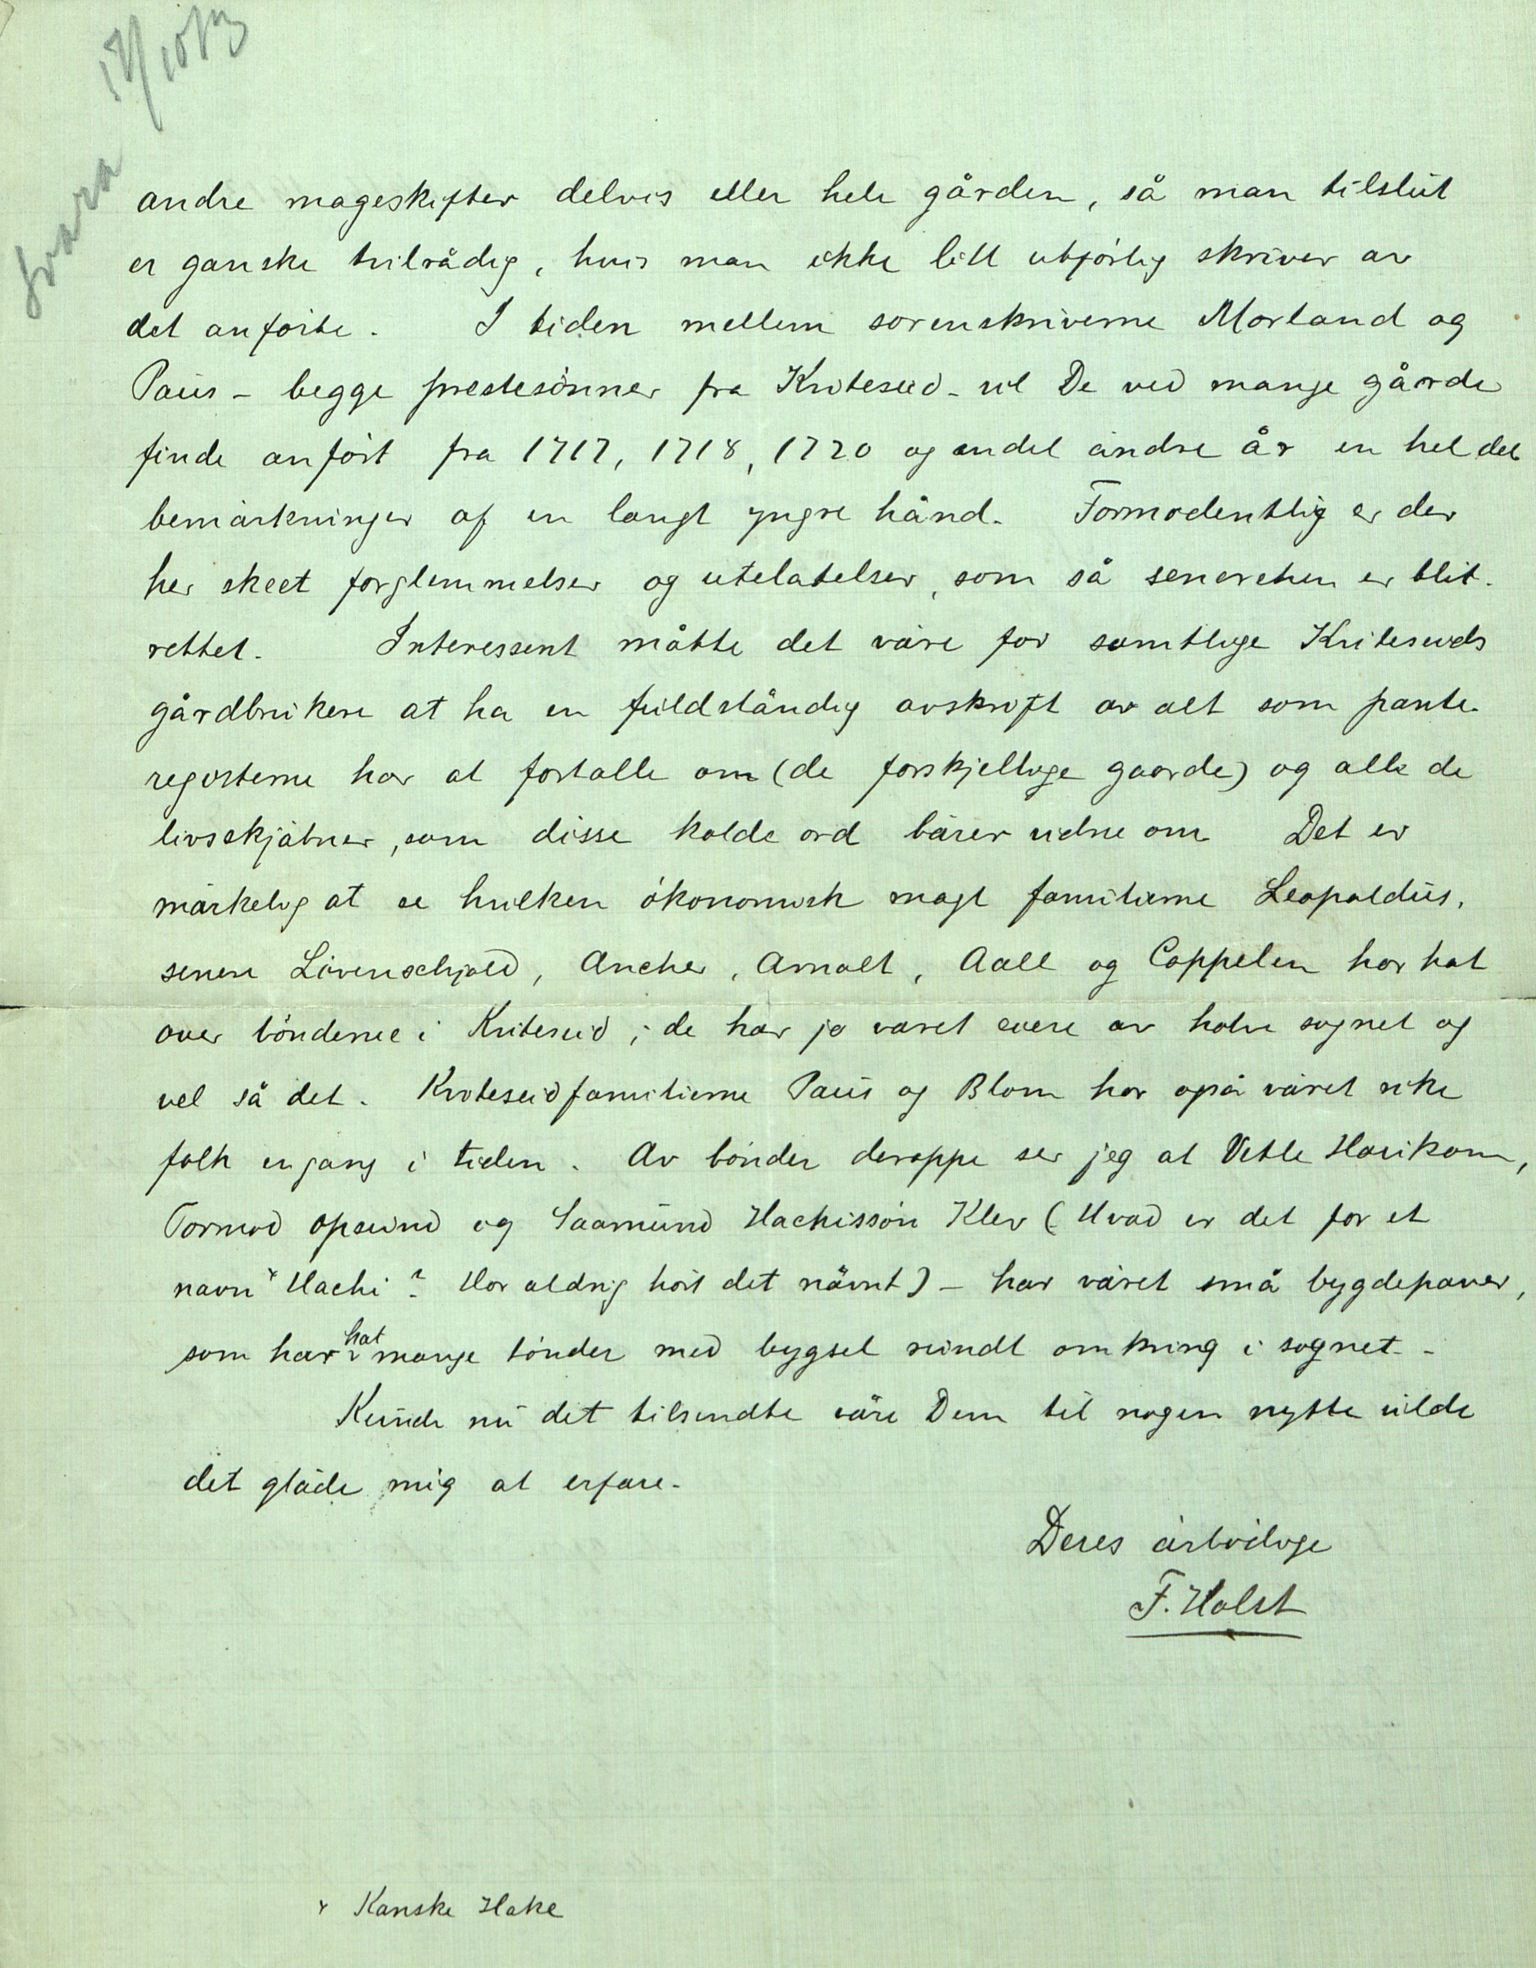 svara 17/10 13
andre mageskifter delvis eller hele gården, så man tilslut
er ganske tvilrådig, hvis man ikke litt utførlig skriver av
det anførte. I tiden mellem sorenskriverne Morland og
Paus - begge prestesønner fra Kviteseid - vil De ved mange gårde
finde anført fra 1717, 1718, 1720 og endel andre år en hel del
bemærkninger af en langt yngre hånd. Formodentlig er der
her skeet forglemmelser og utelatelser, som så senerehen er blit
rettet. Interessent måtte det være for samtlige Kviteseids
gårdbrukere at ha en fuldstændig avskrift av alt som pante-
registerne har at fortælle om (de forskjellige gaarde) og alle de
livsskjæbner, som disse kolde ord bærer vidne om Det er
mærkelig at se hvilken økonomisk magt familierne Leopoldus,
senere Løvenschjold, Ancher, Arnalt, Aall og Cappelen har hat
over bønderne i Kviteseid; de har jo været eiere av halve sognet og
vel så det. Kviteseidfamilierne Paus og Blom har også været rike
folk engang i tiden. Av bønder deroppe ser jeg at Vetle Haukom,
Tormod Opsund og Saamund Hachissøn Klev (Hvad er det for et
navn × Hachi? Har aldrig hørt det nævnt) - har været små bygdepaver,
som har hat mange tønder med bygsel rundt omkring i sognet. -
Kunde nu det tilsendte være Dem til nogen nytte vilde
det glæde mig at erfare.
Deres ærbødige
F. Holst
× Kanske Hake